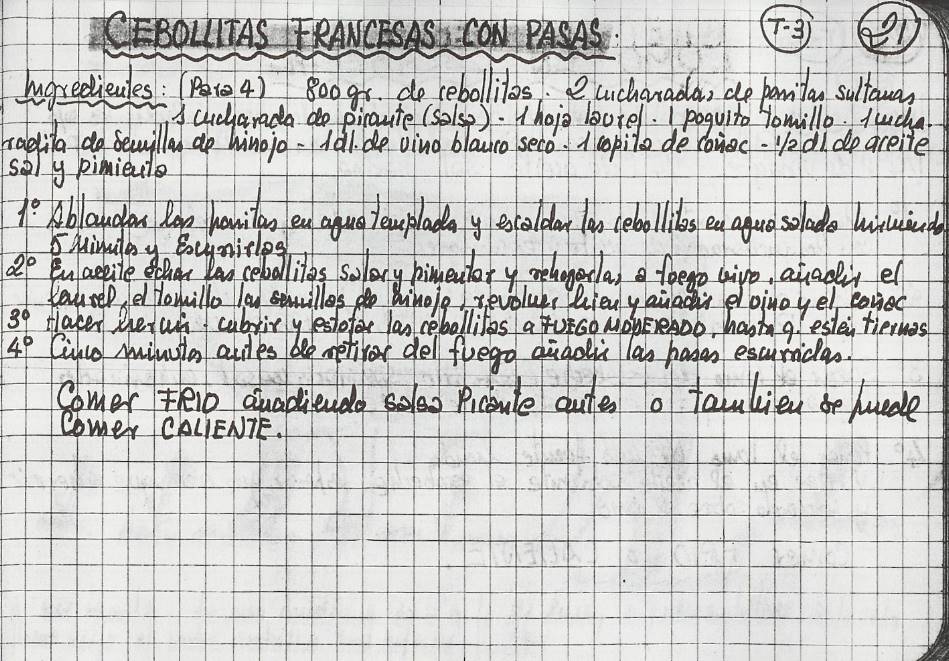 CEBOLLITAS FRANCESAS CON PASAS. T-3 21
Ingredientes: (Para 4) 800 gr. de cebollitas. 2 cucharadas de pasitas sultanas
1 cucharada de picante (salsa) - 1 hoja laurel - 1 poquito tomillo. 1 cucha
radita de semillas de hinojo - 1 dl. de vino blanco seco - 1 copita de coñac - 1/2 dl. de aceite
sal y pimienta
1º Ablandar las pasitas en agua templada y escaldar las cebollitas en agua salada hirviendo
5 minutos y Escurrirlas
2º En aceite echar las cebollitas salar y pimentar y rehogarlas a fuego vivo, añadir el
laurel, el tomillo las semillas de hinojo, revolver bien y añadir el vino y el coñac
3º Hacer hervir. cubrir y estofar las cebollitas a FUEGO MODERADO, hasta q. estén tiernas
4º Cinco minutos antes de retirar del fuego añadir las pasas escurridas.
Comer FRIO añadiendo salsa Picante antes o tambien se puede
Comer CALIENTE.